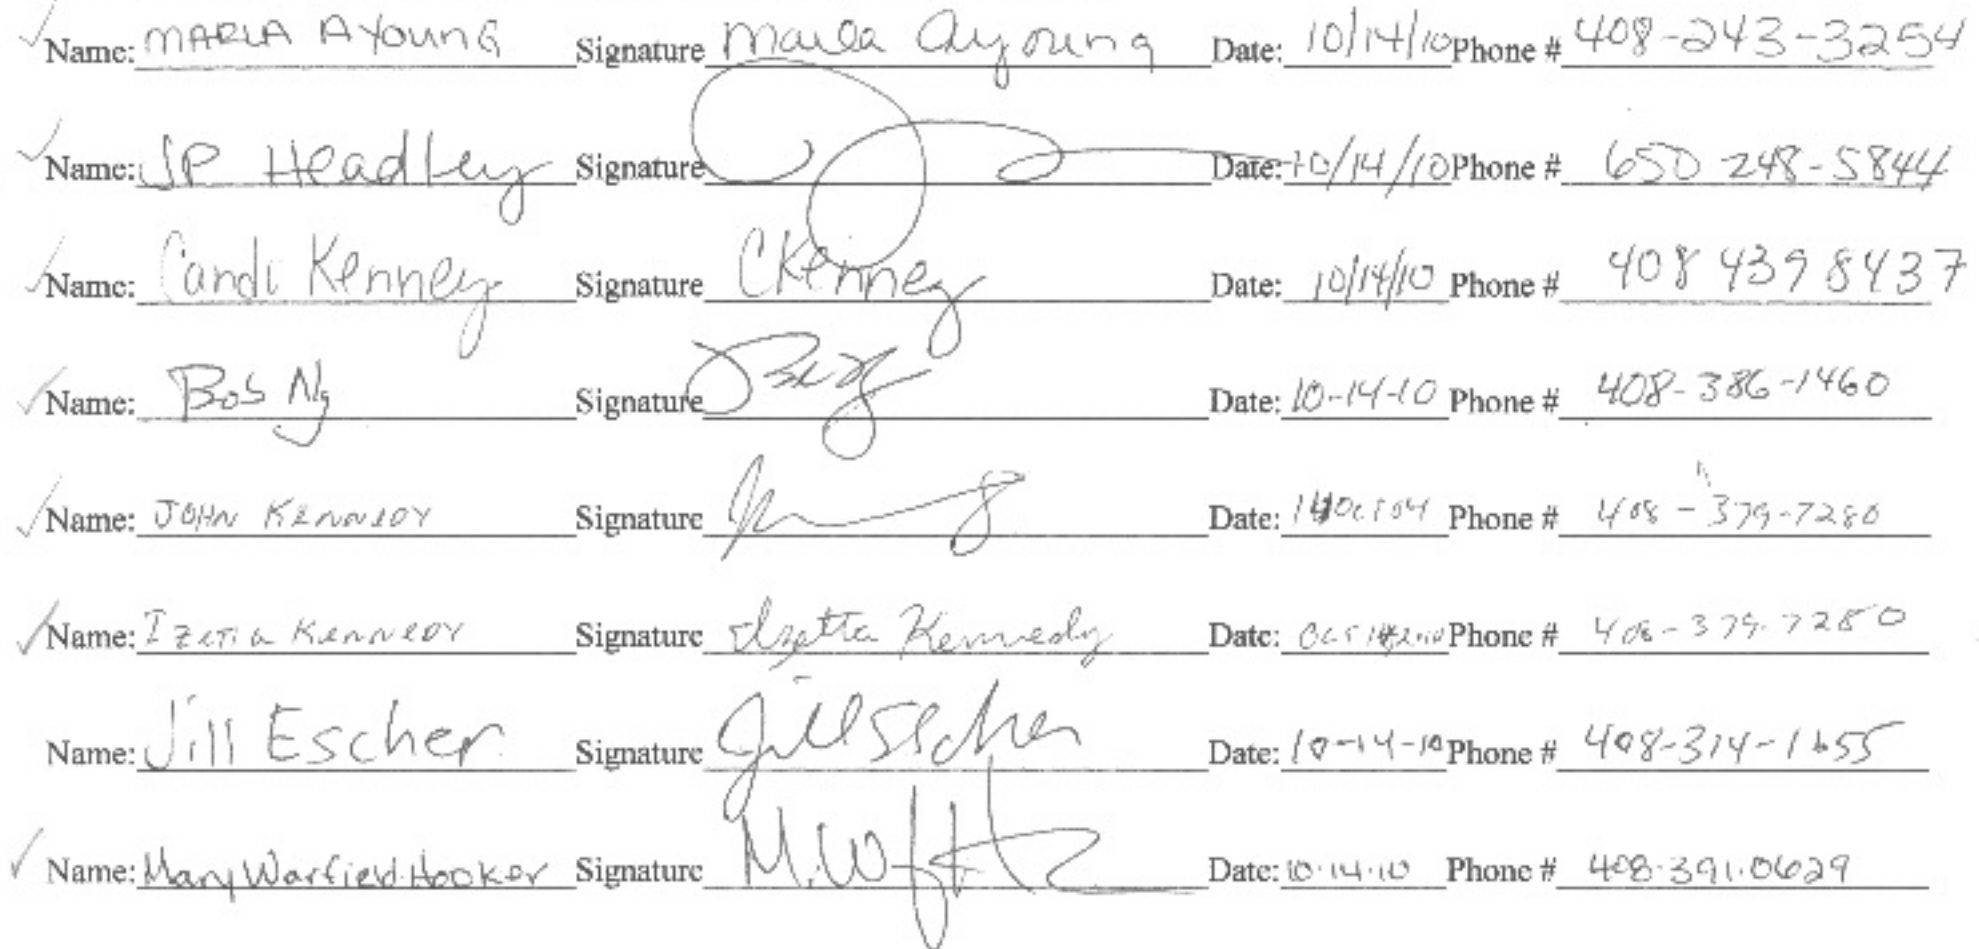 Name: MARIA AYOUNG Signature Maria Ayoung Date: 10/14/10 Phone # 408-243-3254
Name: JP Headley Signature Date: 10/14/10 Phone # 650 248-5844
Name: Candi Kenney Signature CKenney Date: 10/14/10 Phone # 408 439 8437
Name: Bob Ng Signature Date: 10-14-10 Phone # 408-386-1460
Name: JOHN KENNEDY Signature Date: Phone # 408-379-7280
Name: Izetta Kennedy Signature Izetta Kennedy Date: Oct Phone # 408-379-7280
Name: Jill Escher Signature Jill Escher Date: 10-14-10 Phone # 408-314-1655
Name: Mary Warfield-Hooker Signature Date: 10.14.10 Phone # 408.391.0629